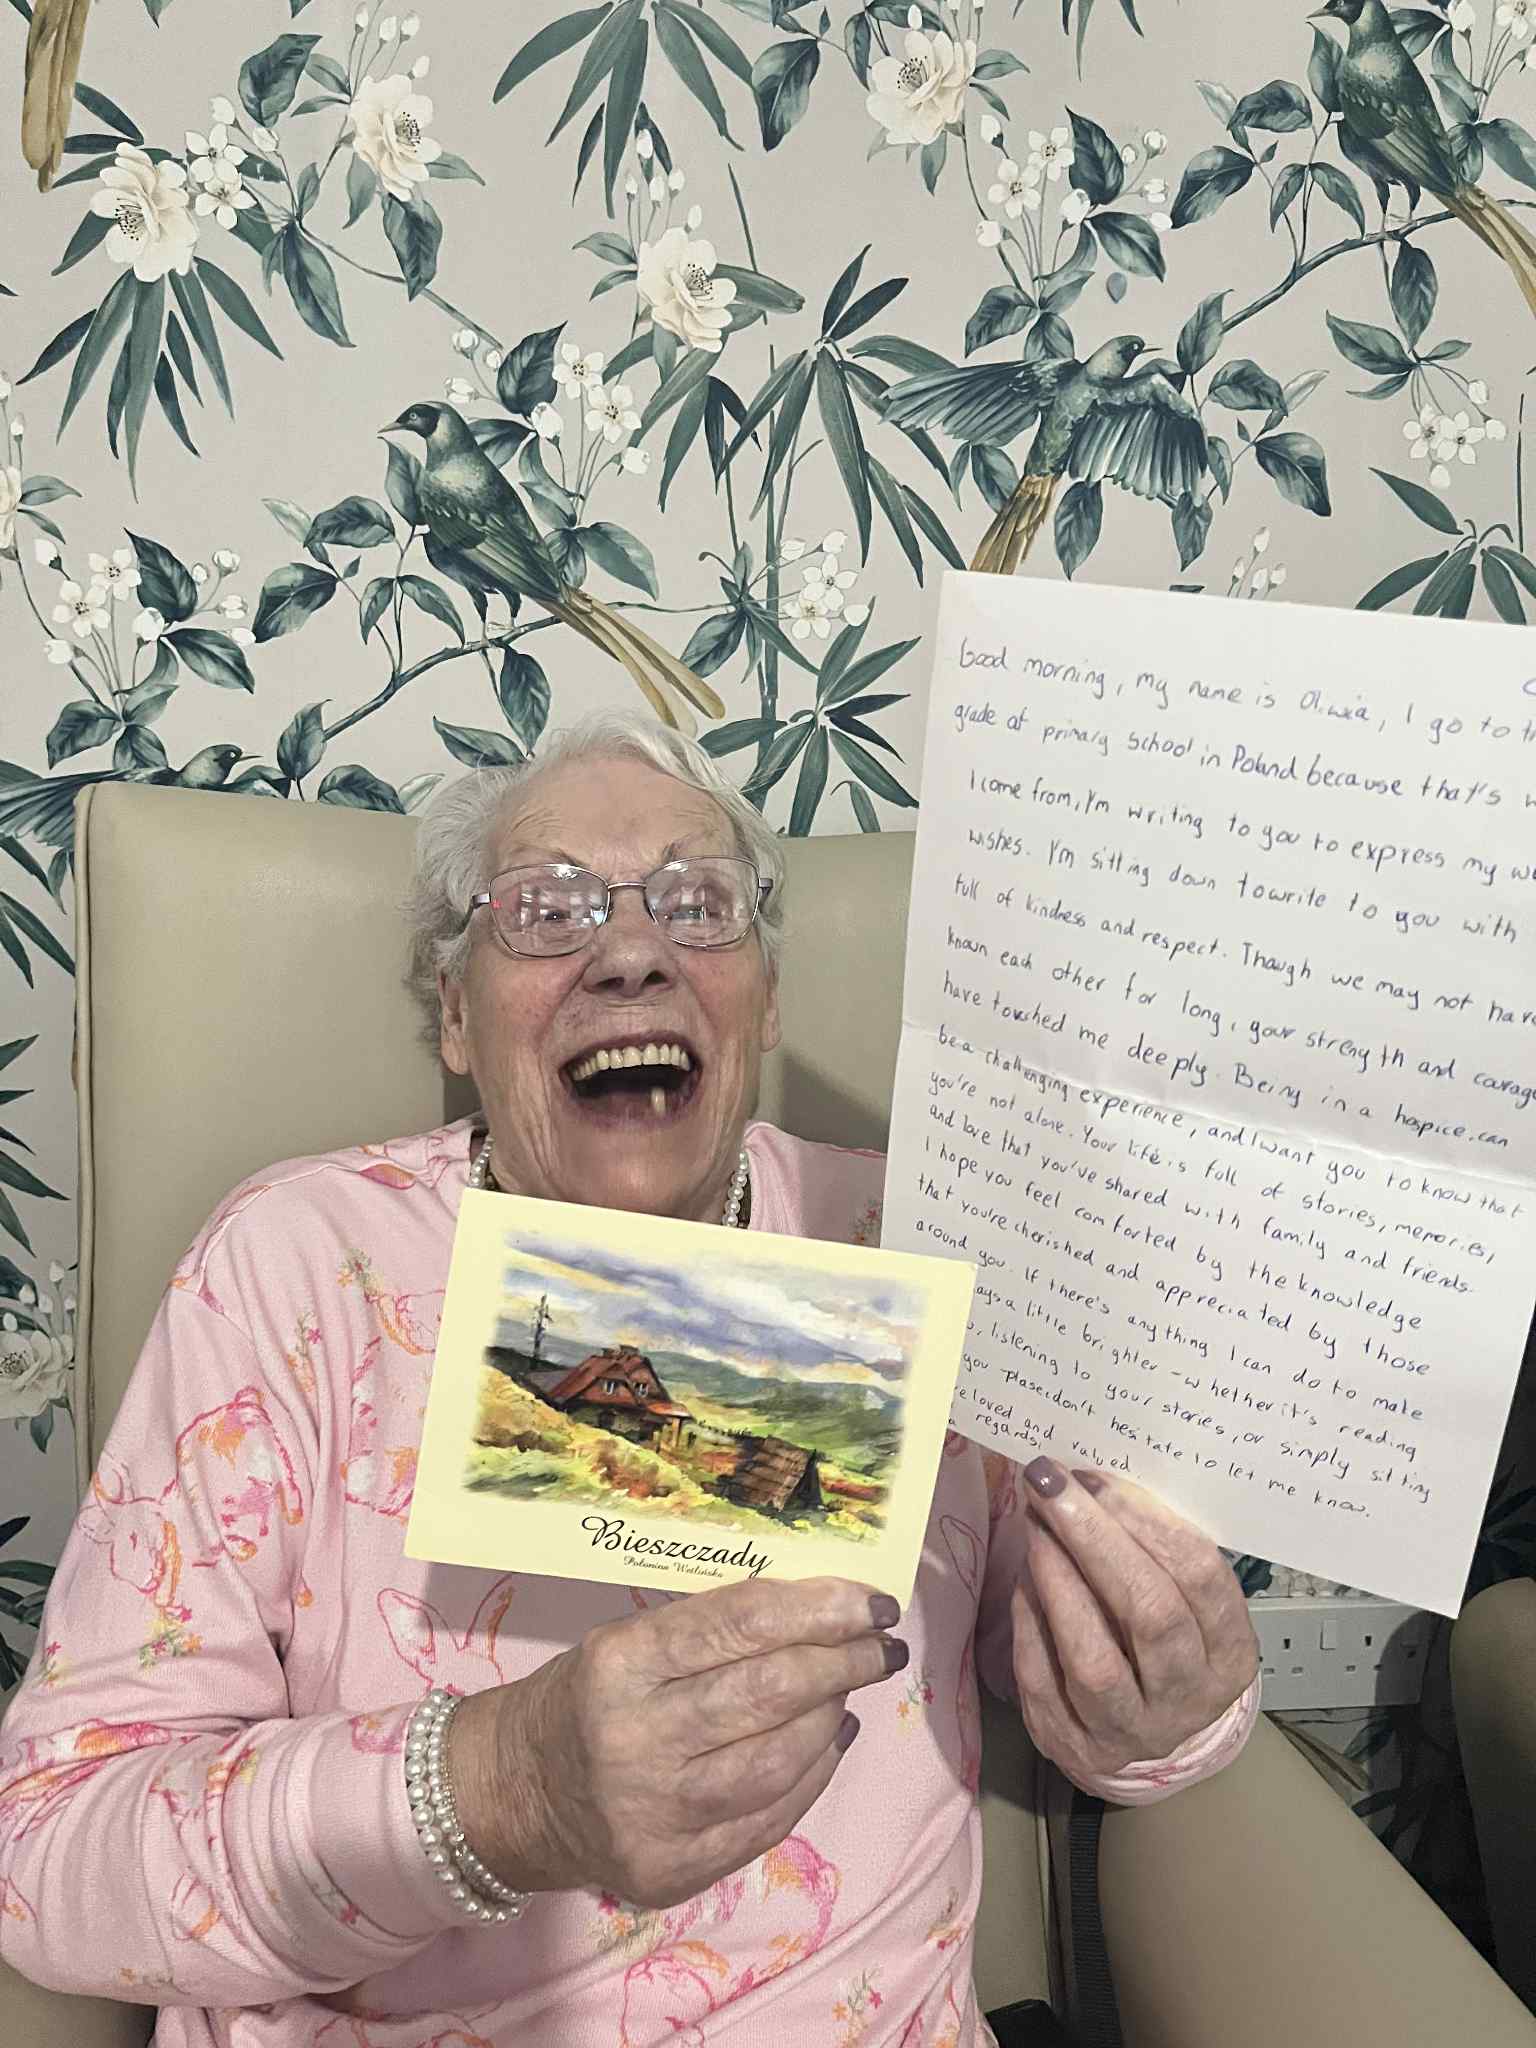 Good morning, my name is Oliwia, I go to
grade at primary school in Poland because that's
I come from, I'm writing to you to express my
wishes. I'm sitting down towrite to you with
full of kindness and respect. Though we may not have
known each other for long, your strength and courage
have touched me deeply. Being in a hospice.can
be a challenging experience, and I want you to know that
you're not alone. Your life is full of stories, memories,
and love that you've shared with family and friends.
I hope you feel comforted by the knowledge
that you're cherished and appreciated by those
around you. If there's anything I can do to make
a little brighter - whether it's reading
listening to your stories, or simply sitting
you - please don't hesitate to let me know.
loved and valued.
regards,
Bieszczady
Połonina Wetlińska